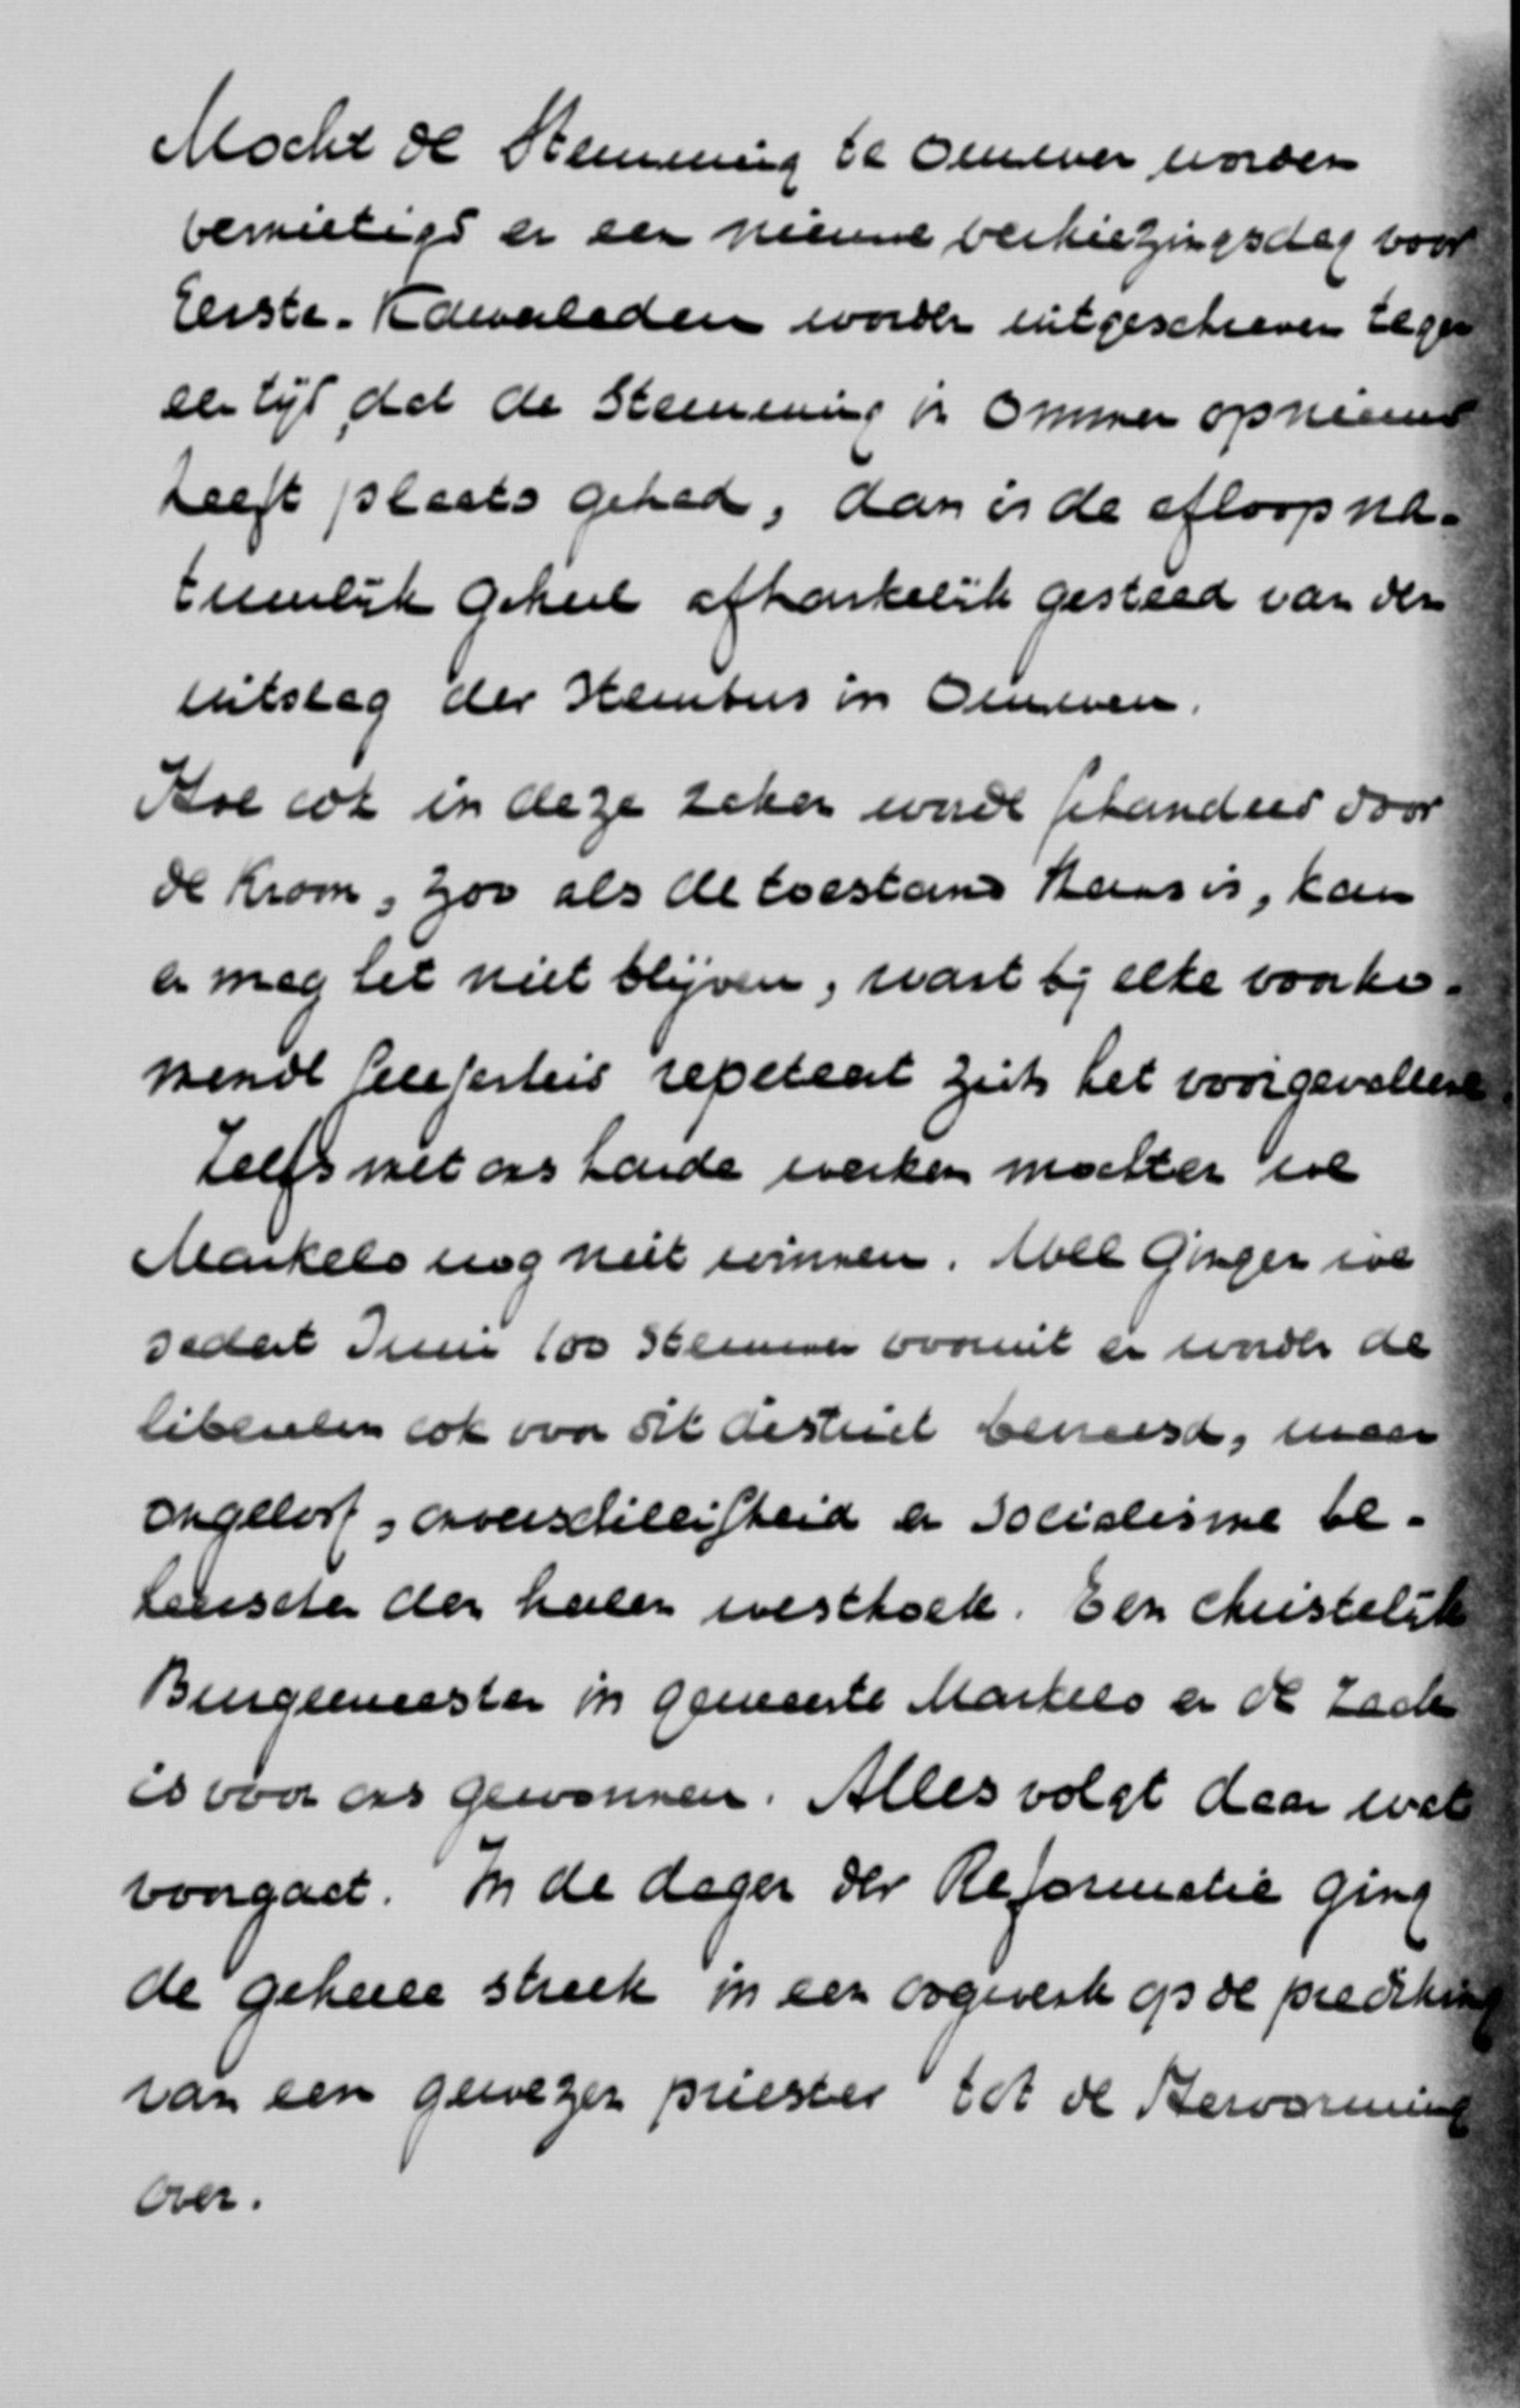 Mocht de Stemming te Ommen worden
vernietigd en een nieuwe verkiezingsdag voor
Eerste-Kamerleden worden uitgeschreven tegen
een tijd, dat de Stemming in Ommen opnieuw
heeft plaats gehad, dan is de afloop na-
tuurlijk geheel afhankelijk gesteld van den
uitslag der Stembus in Ommen.
Hoe ook in deze zaken worde gehandeld door
de Kroon, zoo als de toestand thans is, kan
en mag het niet blijven, want bij elke voorko-
mende gelegenheid repeteert zich het voorgevallene.
Zelfs met ons harde werken mochten we
Markelo nog niet winnen. Wel gingen we
sedert Juni 100 Stemmen vooruit en worden de
liberalen ook voor dit district bevreesd, maar
ongeloof, onverschilligheid en Socialisme be-
heerschen den heelen westhoek. Een Christelijk
Burgemeester in gemeente Markelo en de zaak
is voor ons gewonnen. Alles volgt daar wat
voorgaat. In de dagen der Reformatie ging
de geheele streek in een oogwenk op de prediking
van een gewezen priester tot de Hervorming
over.